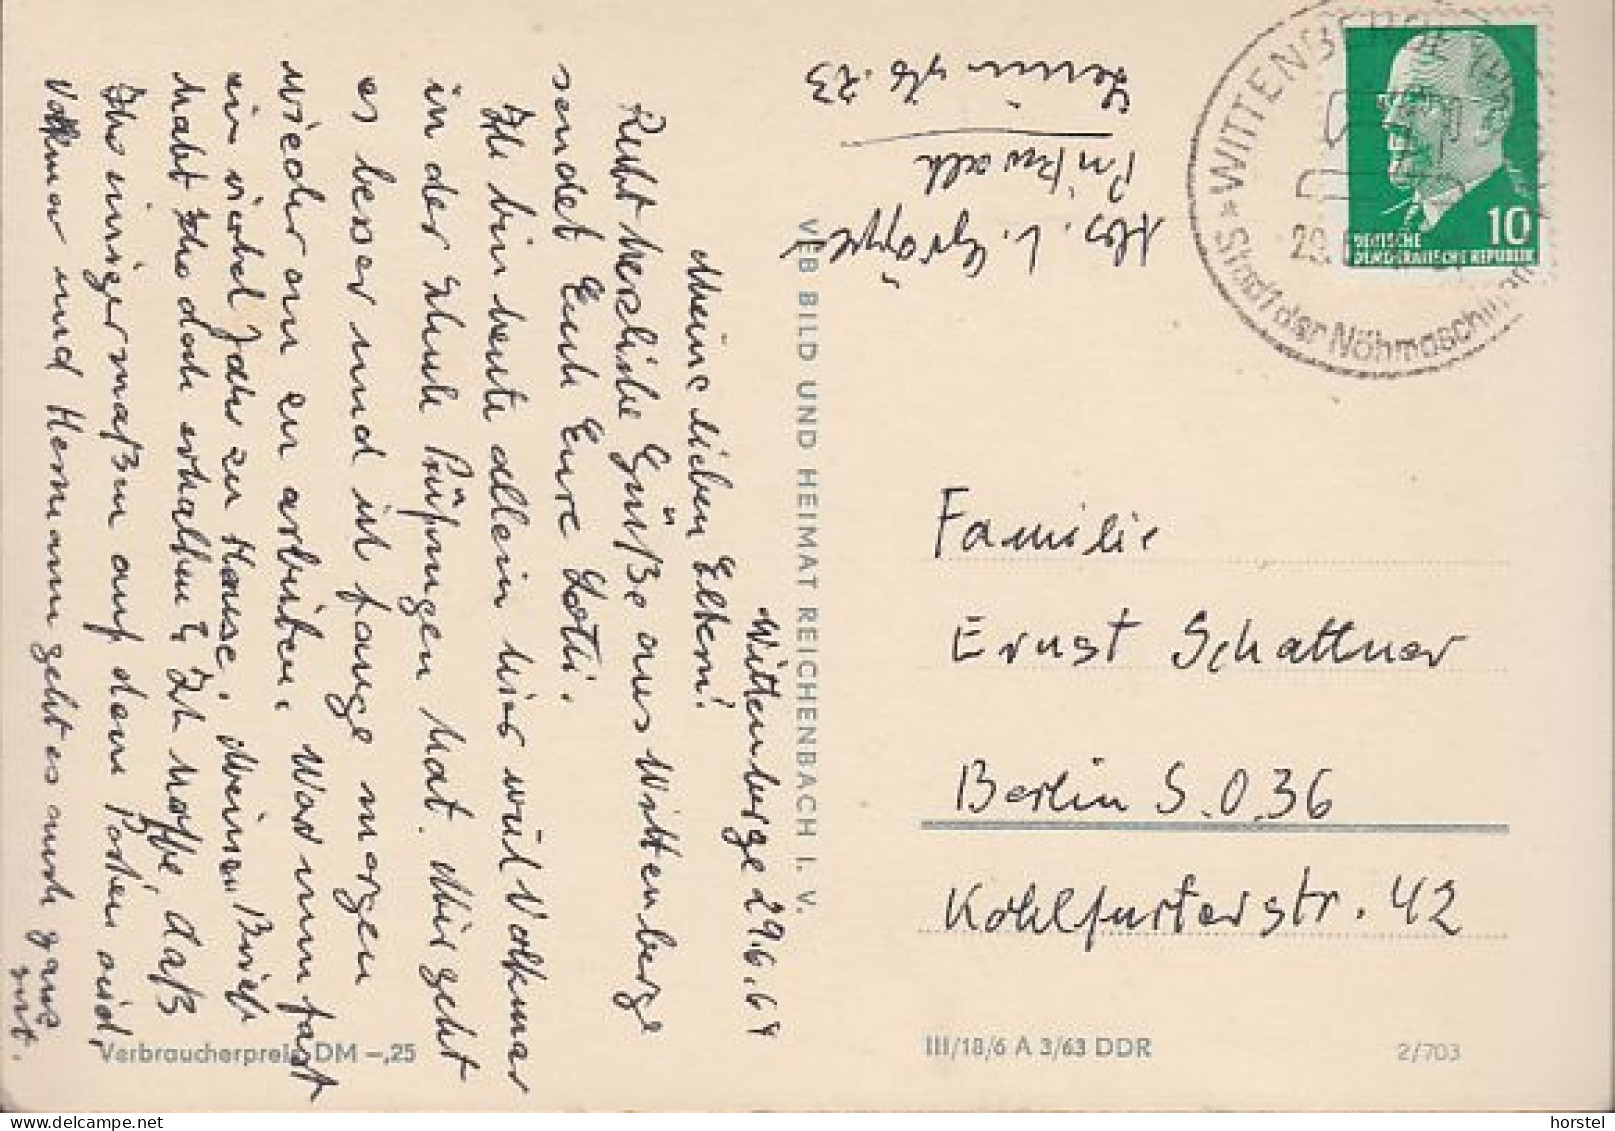 Wittenberge 29.6.64
Meine lieben Eltern!
Recht herzliche Grüße aus Wittenberge
sendet Euch Eure Lotti.
Ich bin heute allein hier weil Volkmar
in der Schule Prüfungen hat. Mir geht
es besser und ich fange morgen
wieder an zu arbeiten. War nun fast
ein viertel Jahr zu Hause. Meinen Brief
habt Ihr doch erhalten? Ich hoffe, daß
Ihr einigermaßen auf dem Posten seid,
Volkmar und Hermann geht es auch ganz
gut.
Verbraucherpreis DM -,25
VEB BILD UND HEIMAT REICHENBACH I. V.
Abs. L.
Pritzwalk
WITTENBERGE
29.
Stadt der Nähmaschinen
10
DEUTSCHE
DEMOKRATISCHE REPUBLIK
Familie
Ernst Schattner
Berlin S.O.36
Kohlfurterstr. 42
III/18/6 A 3/63 DDR
2/703
horstel